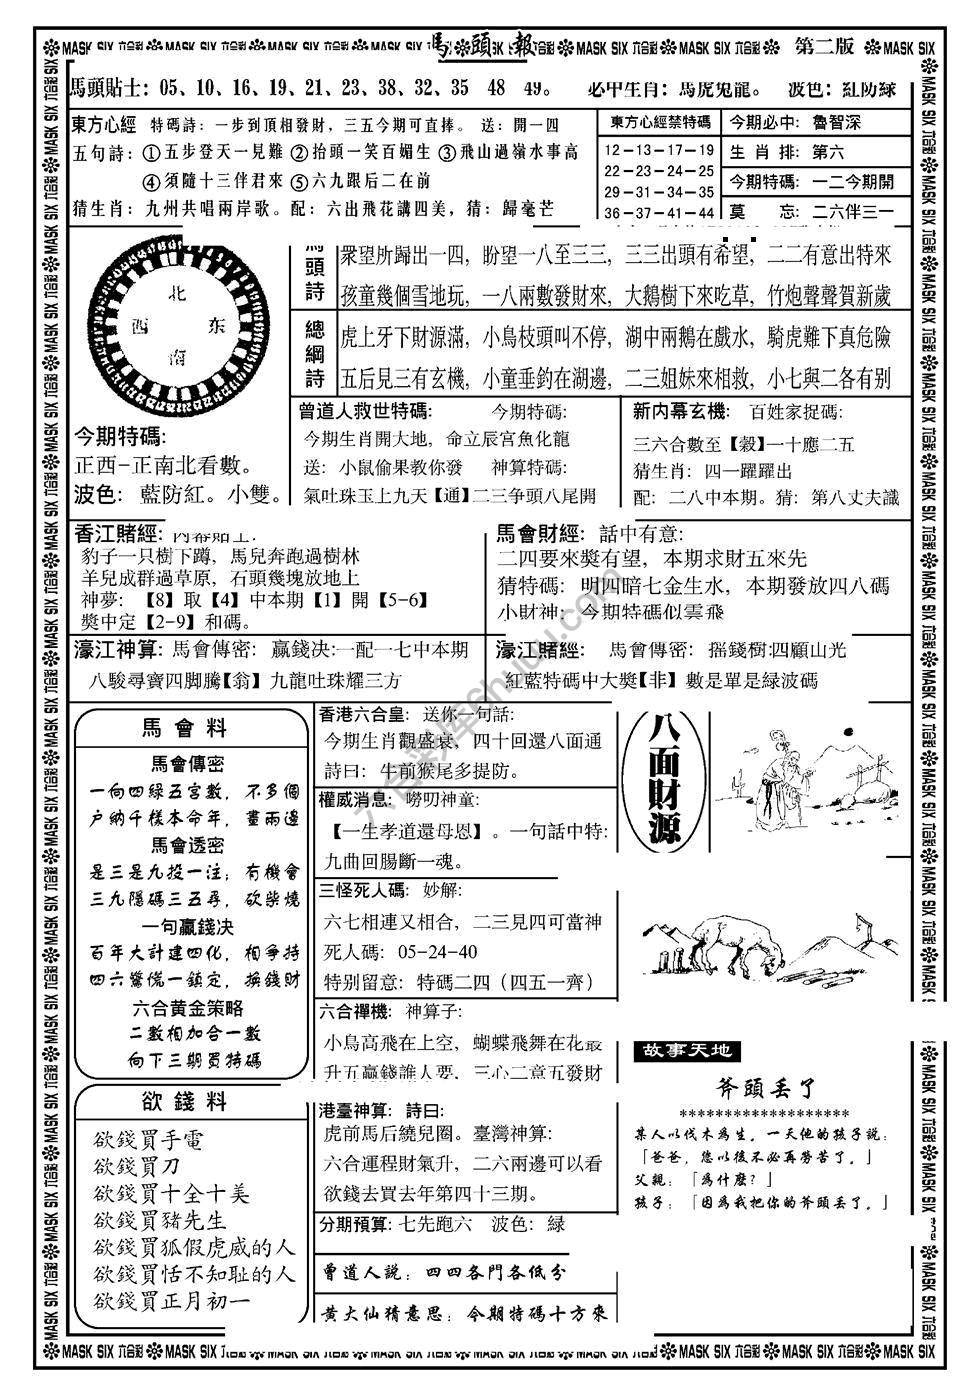 馬頭報
第二版
MASK SIX 六合彩
馬頭貼士：05、10、16、19、21、23、38、32、35 48 49。 必中生肖：馬虎兔龍。 波色：紅防綠
東方心經 特碼詩：一步到頂相發財，三五今期可直捧。 送：開一四
五句詩：①五步登天一見難 ②抬頭一笑百媚生 ③飛山過嶺水事高
④須隨十三伴君來 ⑤六九跟后二在前
猜生肖：九州共唱兩岸歌。配：六出飛花講四美，猜：歸毫芒
東方心經禁特碼
12-13-17-19
22-23-24-25
29-31-34-35
36-37-41-44
今期必中：魯智深
生 肖 排：第六
今期特碼：一二今期開
莫 忘：二六伴三一
北
西 东
南
今期特碼:
正西-正南北看數。
波色：藍防紅。小雙。
馬頭詩
衆望所歸出一四，盼望一八至三三，三三出頭有希望，二二有意出特來
孩童幾個雪地玩，一八兩數發財來，大鵝樹下來吃草，竹炮聲聲賀新歲
總綱詩
虎上牙下財源滿，小鳥枝頭叫不停，湖中兩鵝在戲水，騎虎難下真危險
五后見三有玄機，小童垂釣在湖邊，二三姐妹來相救，小七與二各有別
曾道人救世特碼: 今期特碼:
今期生肖開大地，命立辰宫魚化龍
送：小鼠偷果教你發 神算特碼:
氣吐珠玉上九天【通】二三争頭八尾開
新内幕玄機：百姓家捉碼:
三六合數至【穀】一十應二五
猜生肖：四一躍躍出
配：二八中本期。猜：第八丈夫識
香江賭經: 内幕貼士:
豹子一只樹下蹲，馬兒奔跑過樹林
羊兒成群過草原，石頭幾塊放地上
神夢：【8】取【4】中本期【1】開【5-6】
獎中定【2-9】和碼。
馬會財經：話中有意:
二四要來獎有望，本期求財五來先
猜特碼：明四暗七金生水，本期發放四八碼
小財神：今期特碼似雲飛
濠江神算：馬會傳密：贏錢决:一配一七中本期
八駿尋寶四脚騰【翁】九龍吐珠耀三方
濠江賭經： 馬會傳密：摇錢樹:四顧山光
紅藍特碼中大獎【非】數是單是緑波碼
馬 會 料
馬會傳密
一向四綠五宮數，不多個
户納千樣本命年，畫兩邊
馬會透密
是三是九投一注；有機會
三九隱碼三五尋，砍柴燒
一句贏錢决
百年大計建四化，相爭持
四六驚慌一鎮定，換錢財
六合黄金策略
二數相加合一數
向下三期買特碼
欲 錢 料
欲錢買手電
欲錢買刀
欲錢買十全十美
欲錢買豬先生
欲錢買狐假虎威的人
欲錢買恬不知耻的人
欲錢買正月初一
香港六合皇：送你一句話:
今期生肖觀盛衰，四十回還八面通
詩曰：牛前猴尾多提防。
權威消息：嘮叨神童:
【一生孝道還母恩】。一句話中特:
九曲回腸斷一魂。
三怪死人碼：妙解:
六七相連又相合，二三見四可當神
死人碼：05-24-40
特别留意：特碼二四（四五一齊）
六合禪機：神算子:
小鳥高飛在上空，蝴蝶飛舞在花叢
升五贏錢誰人要，三心二意五發財
港臺神算：詩曰:
虎前馬后繞兒圈。臺灣神算:
六合運程財氣升，二六兩邊可以看
欲錢去買去年第四十三期。
分期預算：七先跑六 波色：緑
曾道人説：四四各門各低分
黄大仙猜意思：今期特碼十方來
八面財源
故事天地
斧頭丢了
*******************
某人以伐木為生，一天他的孩子説：
「爸爸，您以後不必再勞苦了。」
父親：「為什麽？」
孩子：「因為我把你的斧頭丢了。」